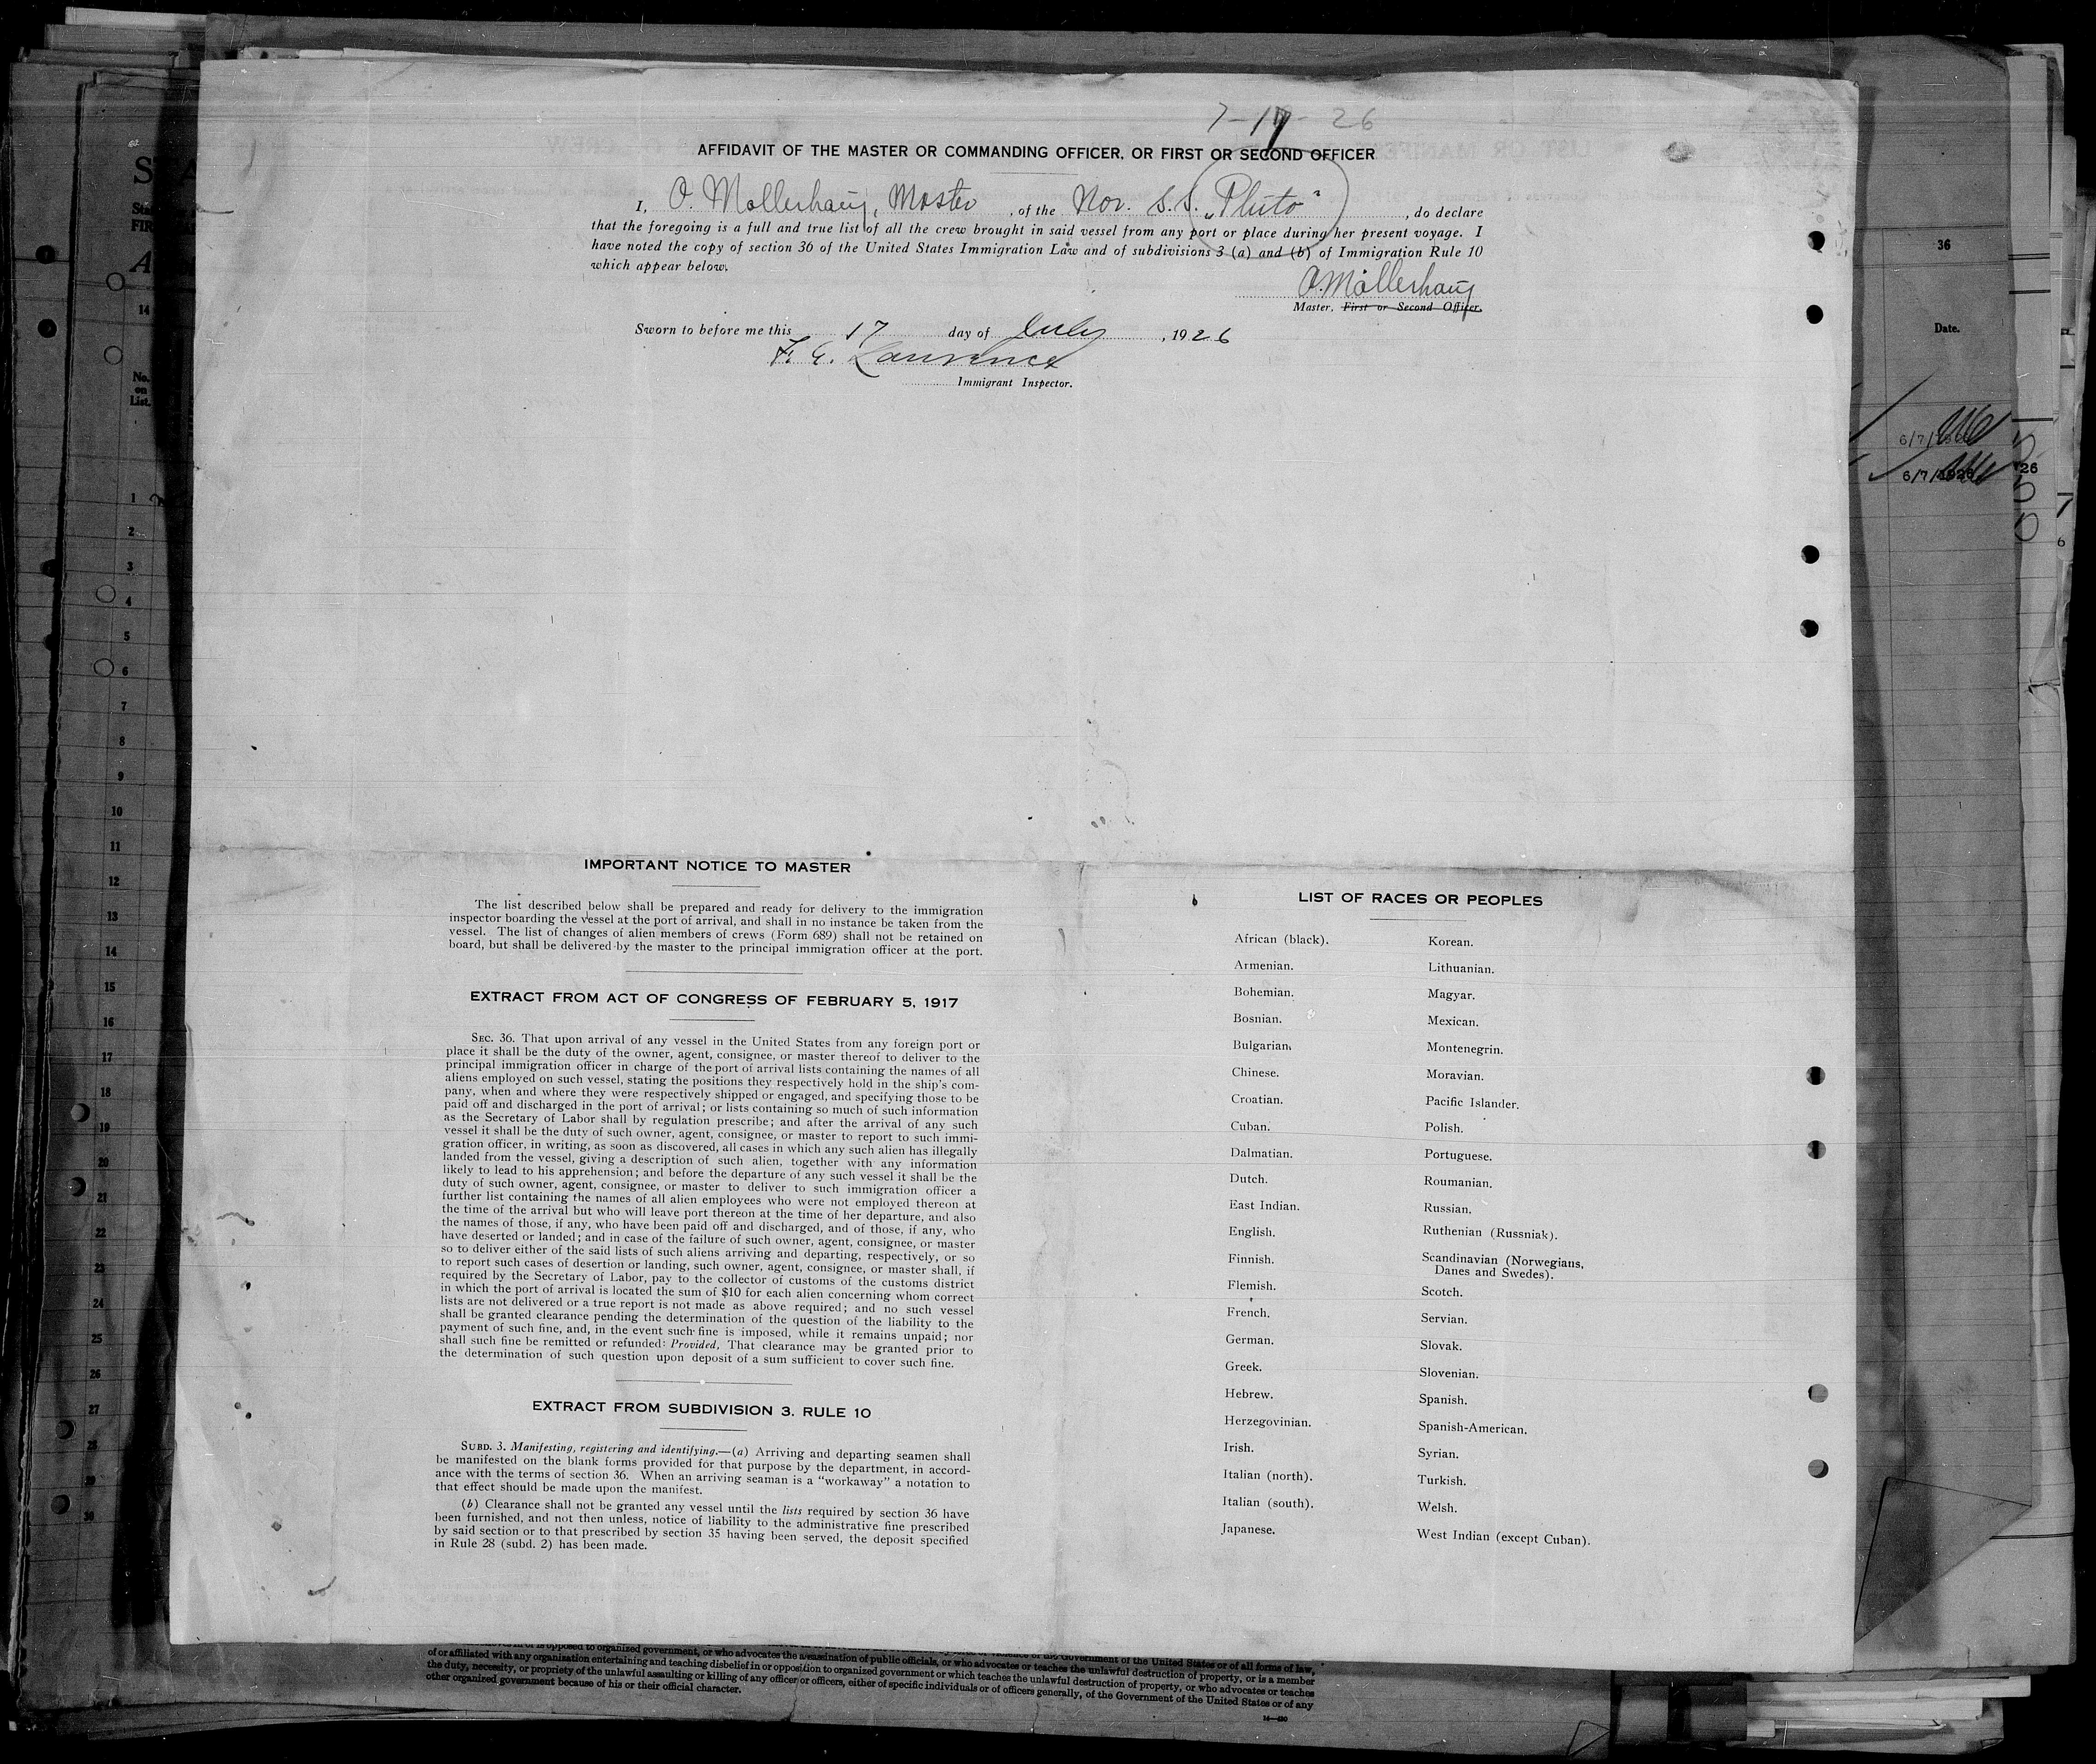 7-17-26
AFFIDAVIT OF THE MASTER OR COMMANDING OFFICER, OR FIRST OR SECOND OFFICER
I, O. Møllerhaug, Master, of the Nor. S.S. „Pluto", do declare
that the foregoing is a full and true list of all the crew brought in said vessel from any port or place during her present voyage. I
have noted the copy of section 36 of the United States Immigration Law and of subdivisions 3 (a) and (b) of Immigration Rule 10
which appear below.
O. Møllerhaug
Master, First or Second Officer.
Sworn to before me this 17 day of July, 1926
F. E. Lawrence
Immigrant Inspector.
IMPORTANT NOTICE TO MASTER
The list described below shall be prepared and ready for delivery to the immigration
inspector boarding the vessel at the port of arrival, and shall in no instance be taken from the
vessel. The list of changes of alien members of crews (Form 689) shall not be retained on
board, but shall be delivered by the master to the principal immigration officer at the port.
EXTRACT FROM ACT OF CONGRESS OF FEBRUARY 5, 1917
SEC. 36. That upon arrival of any vessel in the United States from any foreign port or
place it shall be the duty of the owner, agent, consignee, or master thereof to deliver to the
principal immigration officer in charge of the port of arrival lists containing the names of all
aliens employed on such vessel, stating the positions they respectively hold in the ship's com-
pany, when and where they were respectively shipped or engaged, and specifying those to be
paid off and discharged in the port of arrival; or lists containing so much of such information
as the Secretary of Labor shall by regulation prescribe; and after the arrival of any such
vessel it shall be the duty of such owner, agent, consignee, or master to report to such immi-
gration officer, in writing, as soon as discovered, all cases in which any such alien has illegally
landed from the vessel, giving a description of such alien, together with any information
likely to lead to his apprehension; and before the departure of any such vessel it shall be the
duty of such owner, agent, consignee, or master to deliver to such immigration officer a
further list containing the names of all alien employees who were not employed thereon at
the time of the arrival but who will leave port thereon at the time of her departure, and also
the names of those, if any, who have been paid off and discharged, and of those, if any, who
have deserted or landed; and in case of the failure of such owner, agent, consignee, or master
so to deliver either of the said lists of such aliens arriving and departing, respectively, or so
to report such cases of desertion or landing, such owner, agent, consignee, or master shall, if
required by the Secretary of Labor, pay to the collector of customs of the customs district
in which the port of arrival is located the sum of $10 for each alien concerning whom correct
lists are not delivered or a true report is not made as above required; and no such vessel
shall be granted clearance pending the determination of the question of the liability to the
payment of such fine, and, in the event such fine is imposed, while it remains unpaid; nor
shall such fine be remitted or refunded: Provided, That clearance may be granted prior to
the determination of such question upon deposit of a sum sufficient to cover such fine.
EXTRACT FROM SUBDIVISION 3, RULE 10
SUBD. 3. Manifesting, registering and identifying.—(a) Arriving and departing seamen shall
be manifested on the blank forms provided for that purpose by the department, in accord-
ance with the terms of section 36. When an arriving seaman is a "workaway" a notation to
that effect should be made upon the manifest.
(b) Clearance shall not be granted any vessel until the lists required by section 36 have
been furnished, and not then unless, notice of liability to the administrative fine prescribed
by said section or to that prescribed by section 35 having been served, the deposit specified
in Rule 28 (subd. 2) has been made.
LIST OF RACES OR PEOPLES
African (black).
Armenian.
Bohemian.
Bosnian.
Bulgarian.
Chinese.
Croatian.
Cuban.
Dalmatian.
Dutch.
East Indian.
English.
Finnish.
Flemish.
French.
German.
Greek.
Hebrew.
Herzegovinian.
Irish.
Italian (north).
Italian (south).
Japanese.
Korean.
Lithuanian.
Magyar.
Mexican.
Montenegrin.
Moravian.
Pacific Islander.
Polish.
Portuguese.
Roumanian.
Russian.
Ruthenian (Russniak).
Scandinavian (Norwegians,
Danes and Swedes).
Scotch.
Servian.
Slovak.
Slovenian.
Spanish.
Spanish-American.
Syrian.
Turkish.
Welsh.
West Indian (except Cuban).
14
No.
on
List.
1
2
3
4
5
6
7
8
9
10
11
12
13
14
15
16
17
18
19
20
21
22
23
24
25
26
27
28
29
30
36
Date.
6/7/1926
26
of or affiliated with any organization entertaining and teaching disbelief in or opposition to organized government or which teaches the unlawful destruction of property, or who advocates or teaches
the duty, necessity, or propriety of the unlawful assaulting or killing of any officer or officers, either of specific individuals or of officers generally, of the Government of the United States or of any
other organized government because of his or their official character.